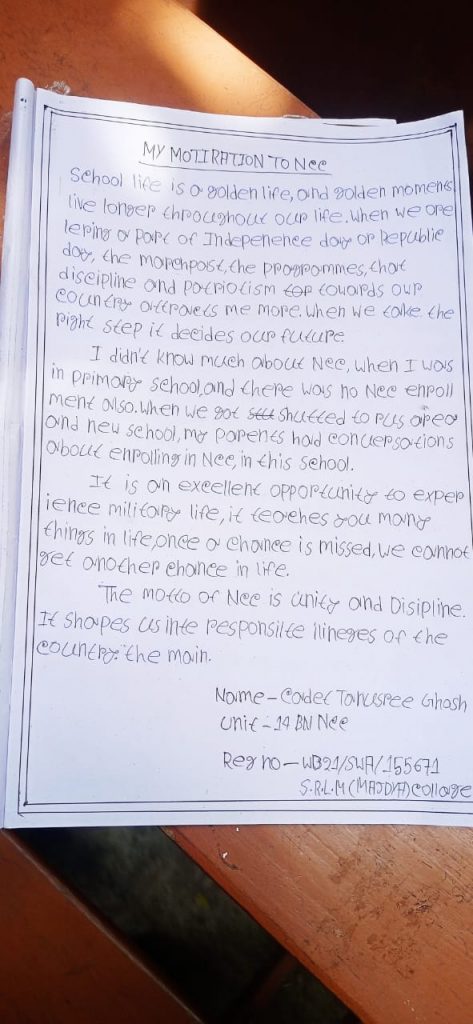 MY MOTIRATION TO Ncc
School life is a golden life, and golden moments
live longer throughout our life. When we are
lering a part of Indepenence day or Republic
day, the marchpast, the programmes, that
discipline and patriotism towards our
country attracts me more. When we take the
right step it decides our future.
I didn't know much about Ncc, when I was
in primary school, and there was no Ncc enroll
ment also. When we got shutted to rus area
and new school, my parents had conversations
about enrolling in Ncc, in this school.
It is an excellent opportunity to exper
ience military life, it teaches you many
things in life, once a chance is missed, we cannot
get another chance in life.
The motto of Ncc is unity and Disipline.
It shapes us inte responsilte ilineges of the
country. the main.
Name - Cadet Tanusree Ghosh
Unit - 14 BN Ncc
Reg no - WB21/SWA/155671
S.R.L.M (MAJDIA) collage